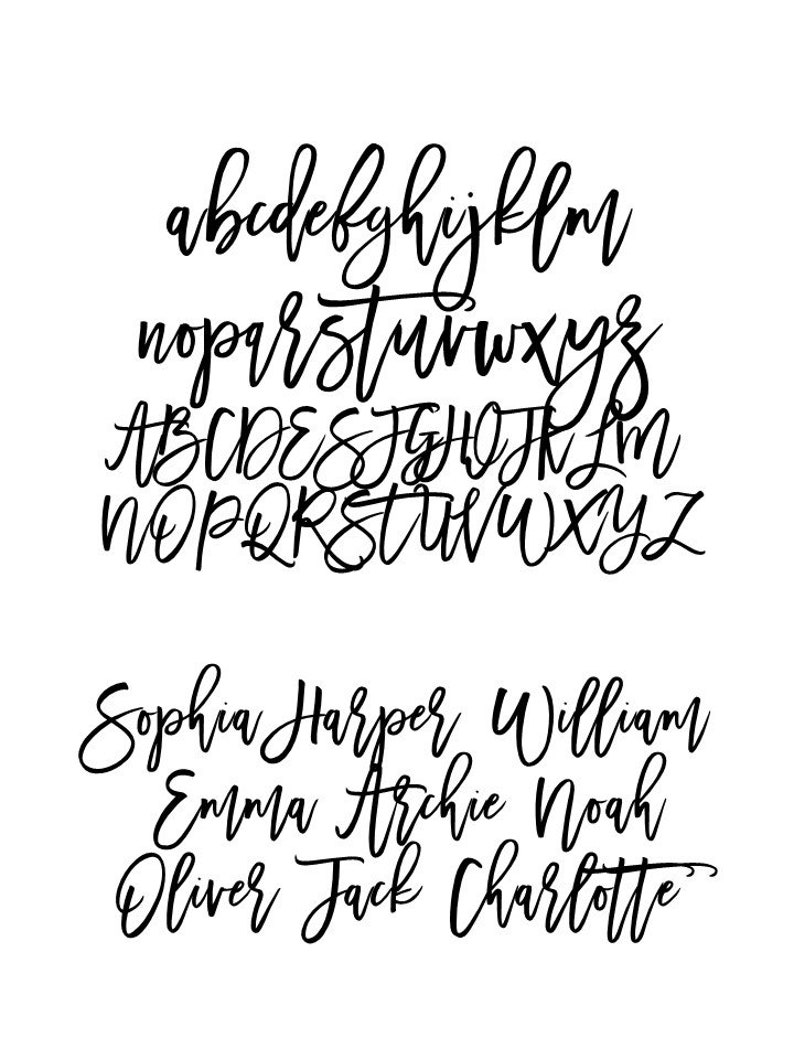 abcdefghijklm
nopqrstuvwxyz
ABCDEFGHIJKLM
NOPQRSTUVWXYZ
Sophia Harper William
Emma Archie Noah
Oliver Jack Charlotte